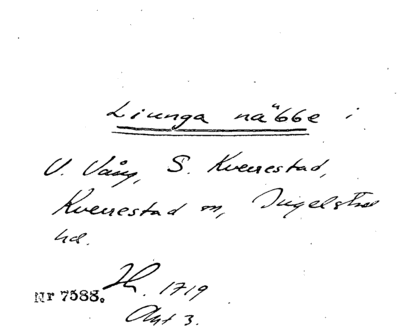 Liunga näbbe i
V. Vång, S. Kverrestad,
Kverrestad sn, Ingelstads
hd.
Nr 7588. Jh. 1719
Akt 3.